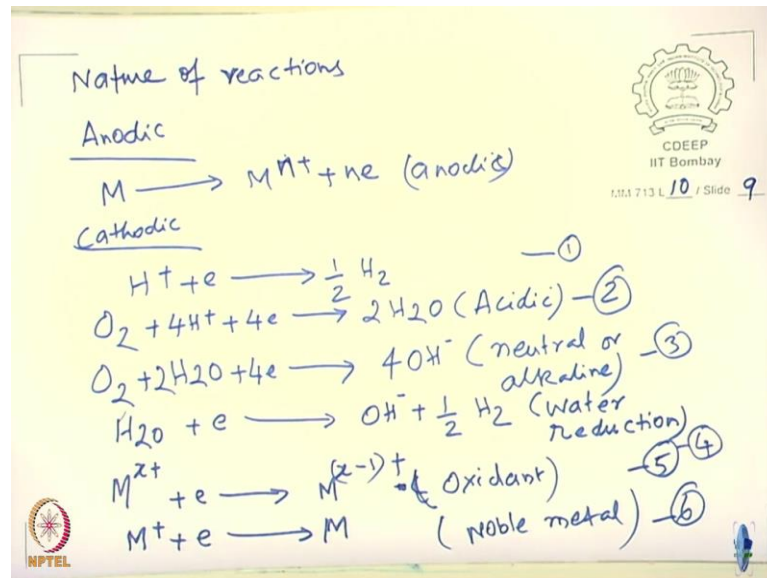 Nature of reactions
CDEEP
IIT Bombay
MM 713 L 10 / Slide 9
Anodic
M ⟶ Mⁿ⁺ + ne (anodic)
Cathodic
H⁺ + e ⟶ 1/2 H₂ —①
O₂ + 4H⁺ + 4e ⟶ 2H₂O (Acidic) —②
O₂ + 2H₂O + 4e ⟶ 4OH⁻ (neutral or alkaline) —③
H₂O + e ⟶ OH⁻ + 1/2 H₂ (water reduction) —④
Mˣ⁺ + e ⟶ M⁽ˣ⁻¹⁾⁺ (Oxidant) —⑤
M⁺ + e ⟶ M (Noble metal) —⑥
NPTEL